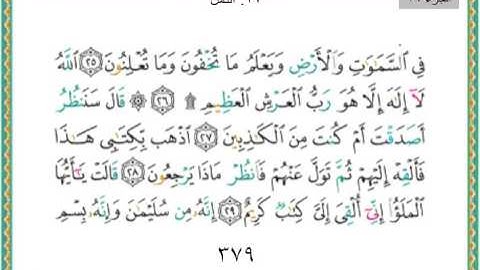 ٢٧. النمل
فِي ٱلسَّمَـٰوَٰتِ وَٱلْأَرْضِ وَيَعْلَمُ مَا تُخْفُونَ وَمَا تُعْلِنُونَ ٢٥ ٱللَّهُ
لَآ إِلَـٰهَ إِلَّا هُوَ رَبُّ ٱلْعَرْشِ ٱلْعَظِيمِ ۩ ٢٦ ۞ قَالَ سَنَنظُرُ
أَصَدَقْتَ أَمْ كُنتَ مِنَ ٱلْكَـٰذِبِينَ ٢٧ ٱذْهَب بِّكِتَـٰبِى هَـٰذَا
فَأَلْقِهْ إِلَيْهِمْ ثُمَّ تَوَلَّ عَنْهُمْ فَٱنظُرْ مَاذَا يَرْجِعُونَ ٢٨ قَالَتْ يَـٰٓأَيُّهَا
ٱلْمَلَؤُا۟ إِنِّىٓ أُلْقِىَ إِلَىَّ كِتَـٰبٌ كَرِيمٌ ٢٩ إِنَّهُۥ مِن سُلَيْمَـٰنَ وَإِنَّهُۥ بِسْمِ
٣٧٩